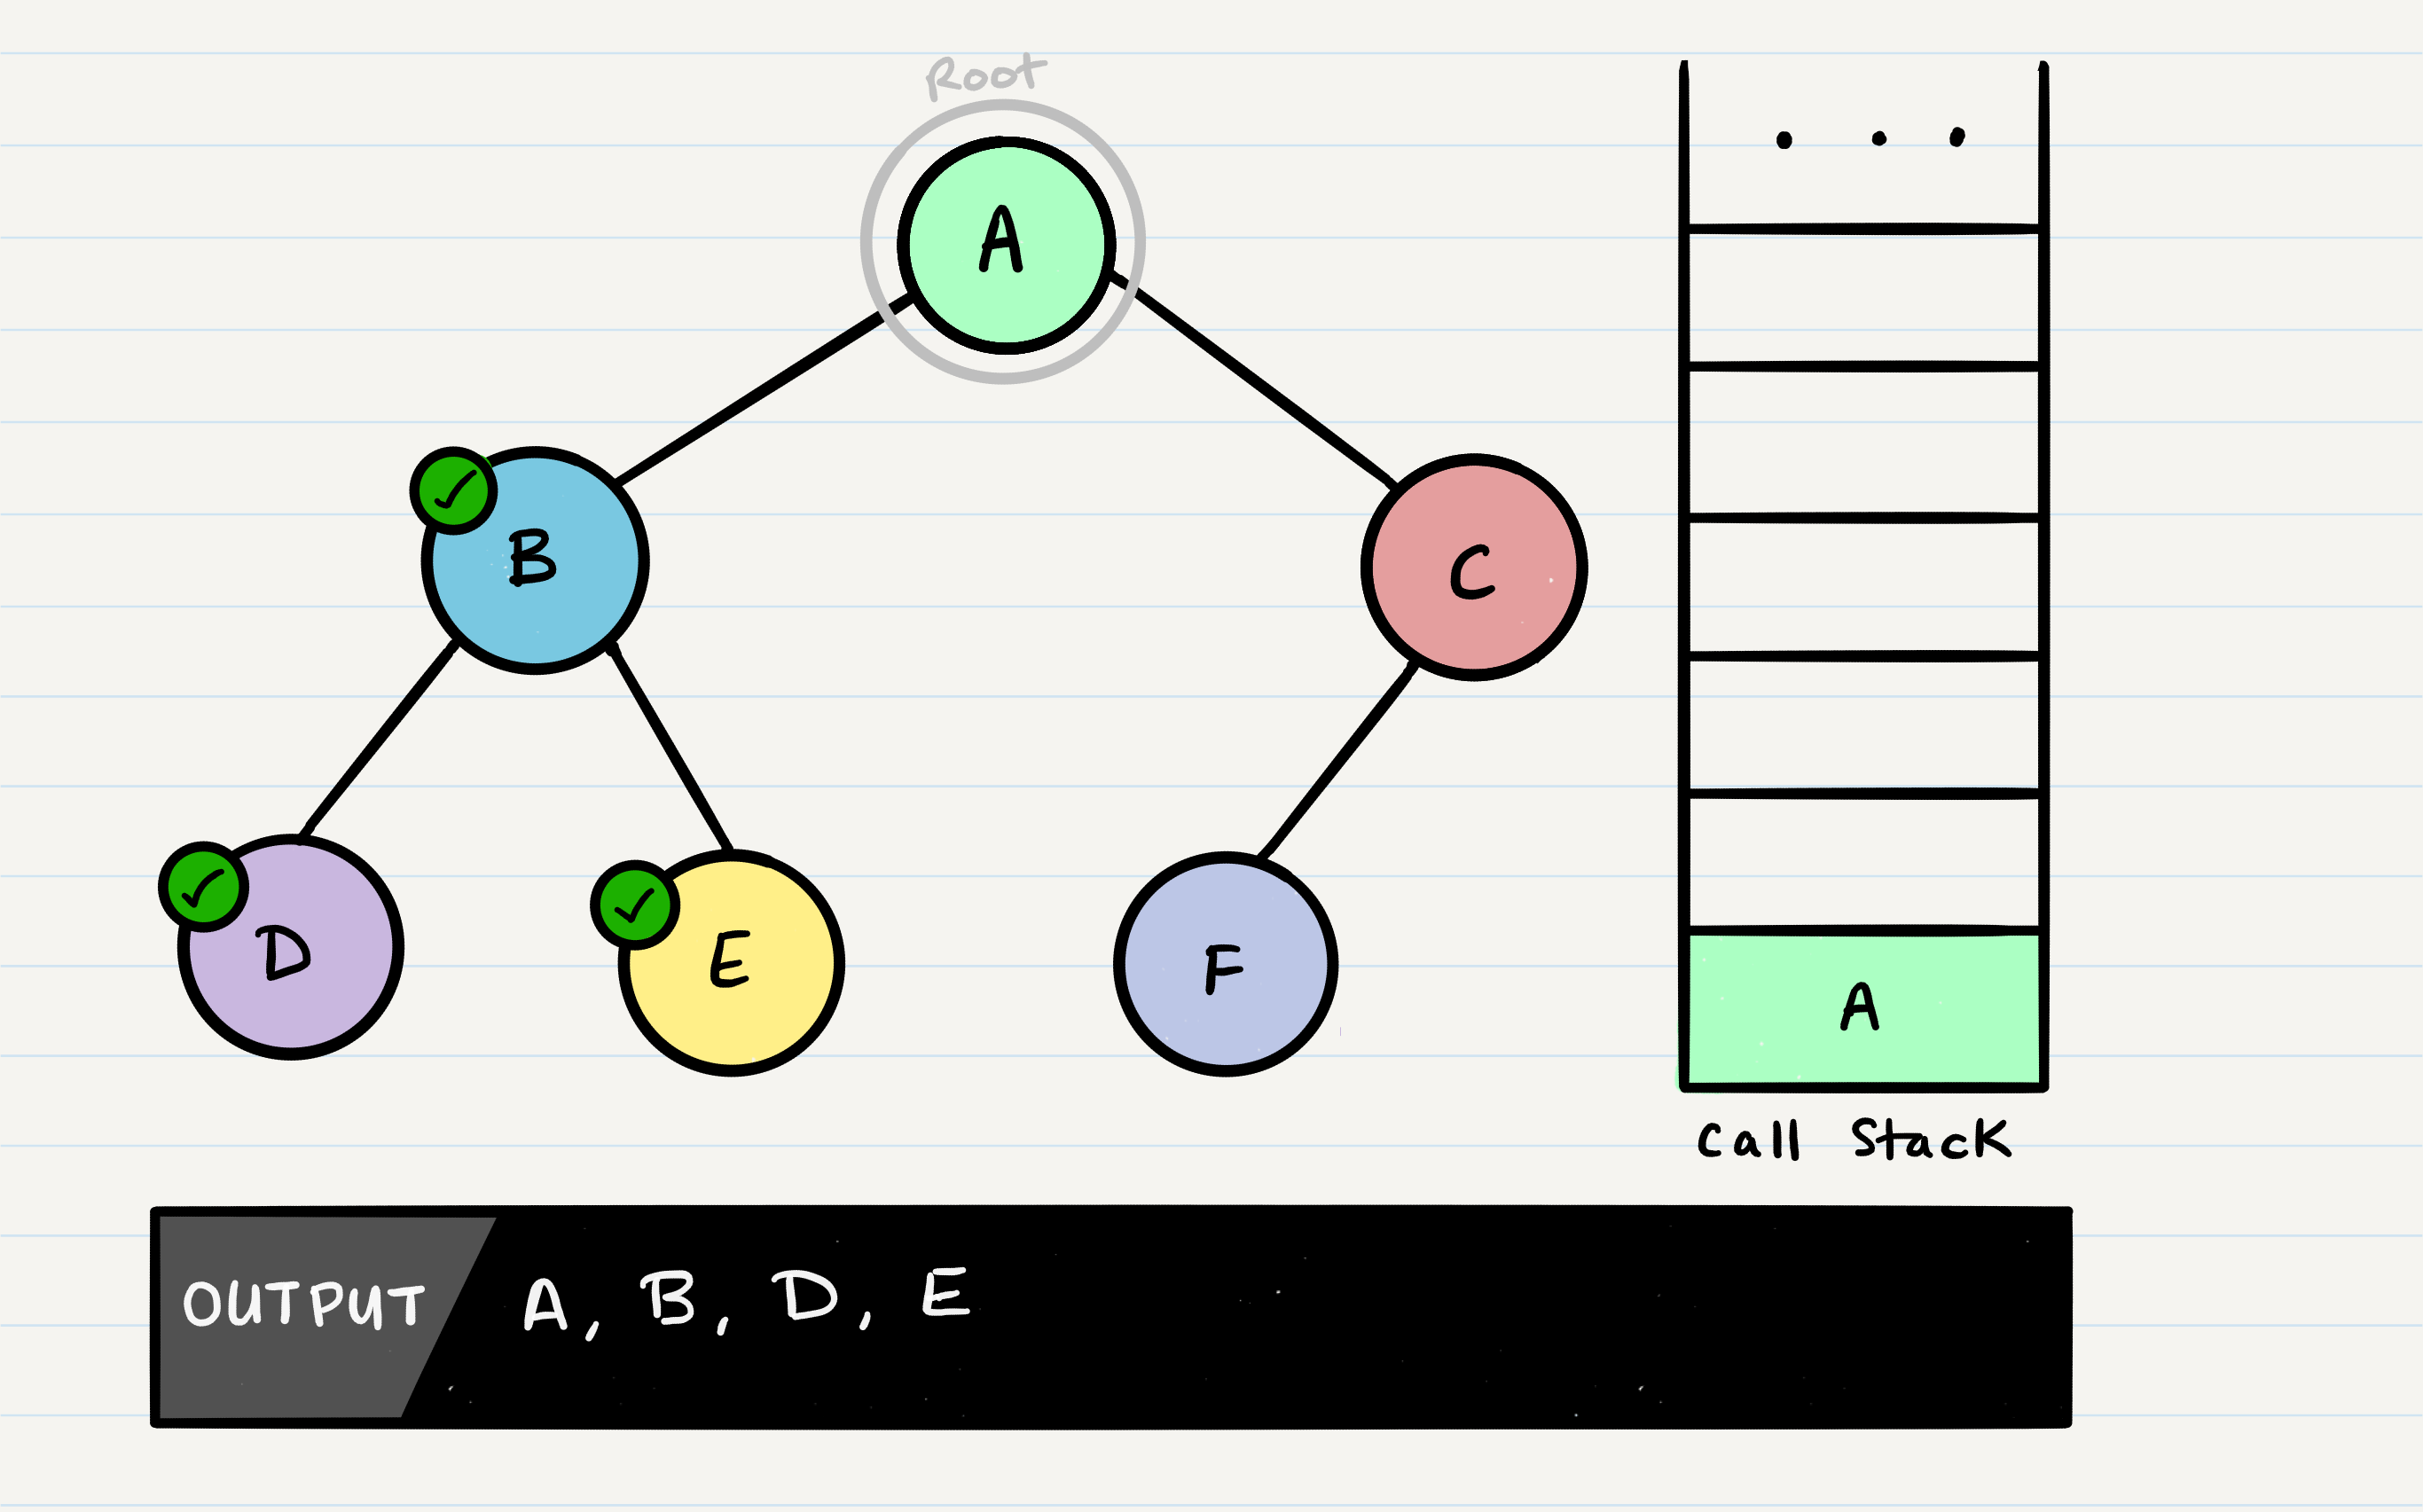 Root
A
B
C
D
E
F
A
Call Stack
OUTPUT
A, B, D, E